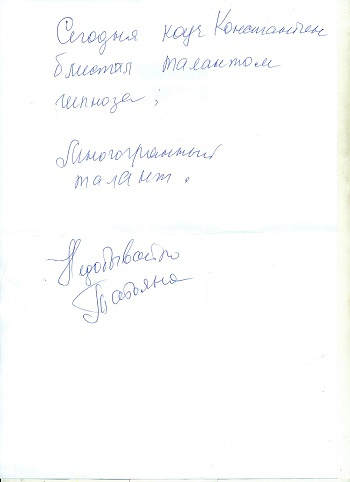 Сегодня коуч Константин
блистал талантом
гипноза;
Многогранный
талант.
Татьяна